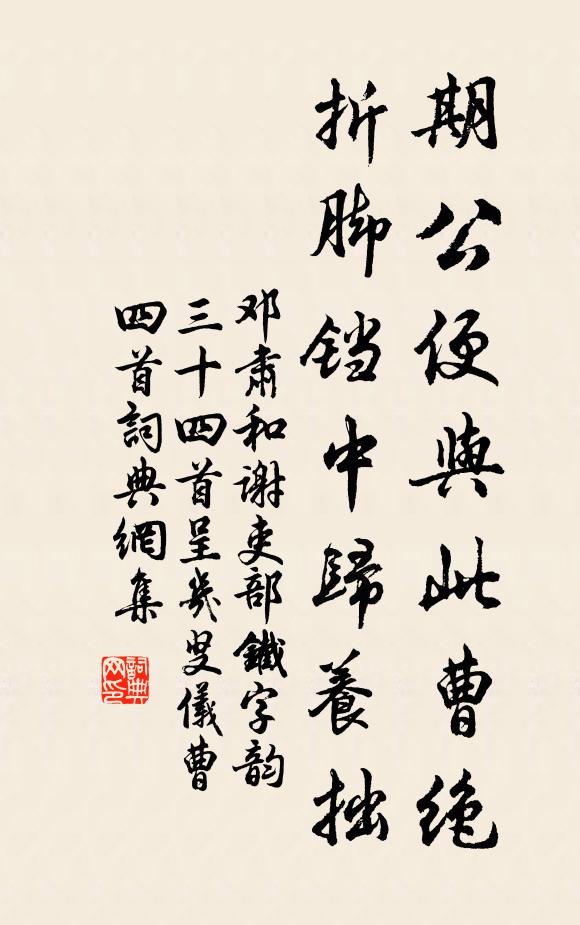 期公便與此曹絶
折脚铛中歸養拙
邓肅和谢吏部鐵字韵
三十四首呈幾叟儀曹
四首詞典網集
詞典网印